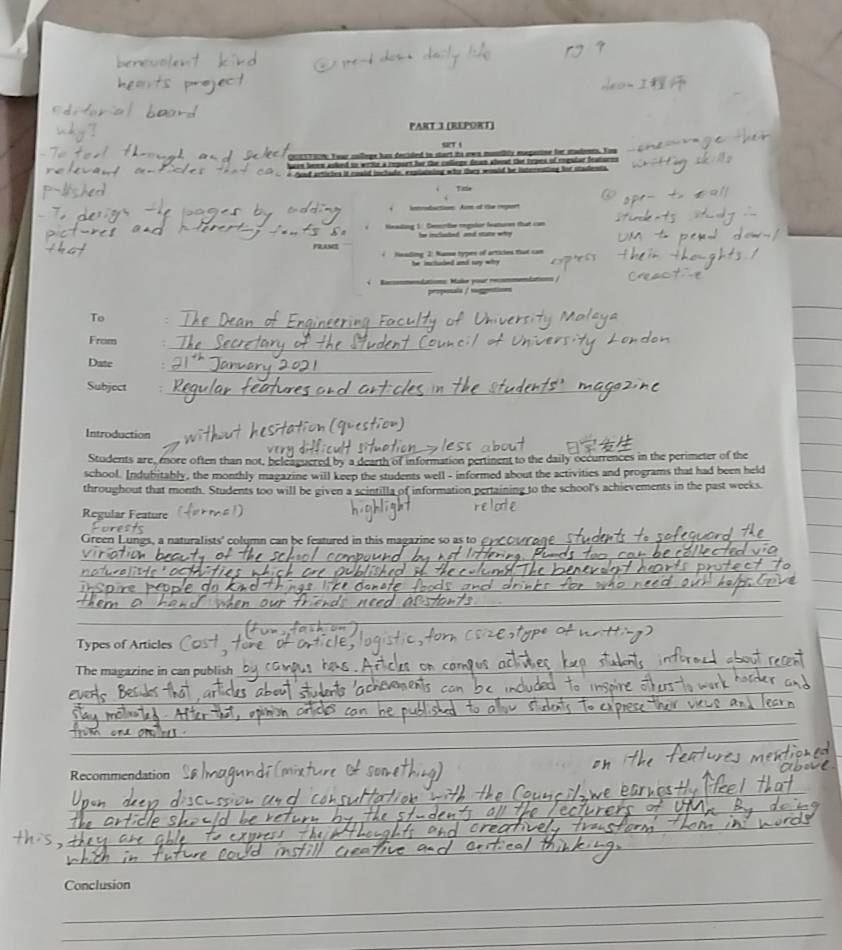 benevolent kind
hearts project
② pend down daily life
pg 9
dean 工程师
editorial board
why?
PART 3 (REPORT)
SET 1
- To tool through and select
relevant articles that ca
published
QUESTION: Your college has decided to start its own monthly magazine for students. You
have been asked to write a report for the college dean about the types of regular features
and articles it could include, explaining why they would be interesting for students.
- encourage their
writting skills
√ Title
√ Introduction: Aim of the report
√ Heading 1: Describe regular features that can
be included and state why
√ Heading 2: Name types of articles that can
be included and say why
√ Recommendations: Make your recommendations /
proposals / suggestions
FRAME
- To design the pages by adding
pictures and interesting fonts so
that
① open to call
students study in
UM to pend down/
express their thoughts/
creactive
To : The Dean of Engineering Faculty of University Malaya
From : The Secretary of the Student Council of University London
Date : 21th January 2021
Subject : Regular features and articles in the students' magazine
Introduction
without hesitation (question)
very difficult situation → less about
日常发生
Students are, more often than not, beleaguered by a dearth of information pertinent to the daily occurrences in the perimeter of the
school. Indubitably, the monthly magazine will keep the students well - informed about the activities and programs that had been held
throughout that month. Students too will be given a scintilla of information pertaining to the school's achievements in the past weeks.
Regular Feature (formel)
highlight
relate
Forests
Green Lungs, a naturalists' column can be featured in this magazine so as to encourage students to safeguard the
viriation beauty of the school compound by not littering. Funds too can be collected via
naturalists' acthities which are published the column. The benevolent hearts protect to
inspire people do kind things like donate foods and drinks for who need our help. Give
them a hand when our friends need asistants.
(fun, fashion)
Types of Articles Cost, tone of article, logistic, form (size, type of writting)
The magazine in can publish by campus news. Articles on campus activities keep students informed about recent
events Besides that, articles about students' achievements can be included to inspire others to work harder and
stay motivated. After that, opinion articles can be published to allow students to exprese their views and learn
from one another.
Recommendation Salmagundi (mixture of something)
on the features mentioned
above
Upon deep discussion and consultation with the Council, we earnestly feel that
the article should be return by the students all the lecturers of UM. By doing
this, they are able to express their thoughts and creatively transform them in words
which in future could instill creative and critical thinking.
Conclusion